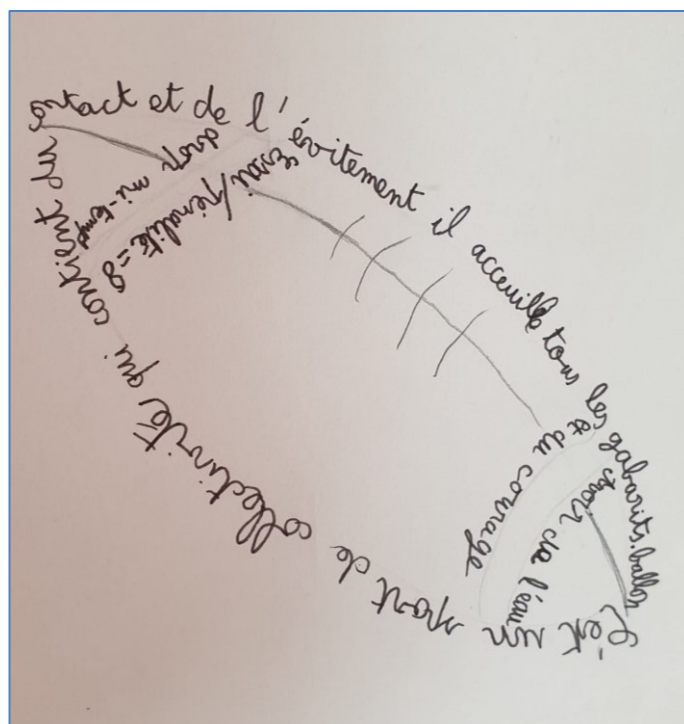 C'est un sport de collectivité qui contient du
contact et de l'évitement il acceuille tous les gabarits. ballon
drop mi-temps
Essai/pénalité=8
et du courage
avoir de l'eau